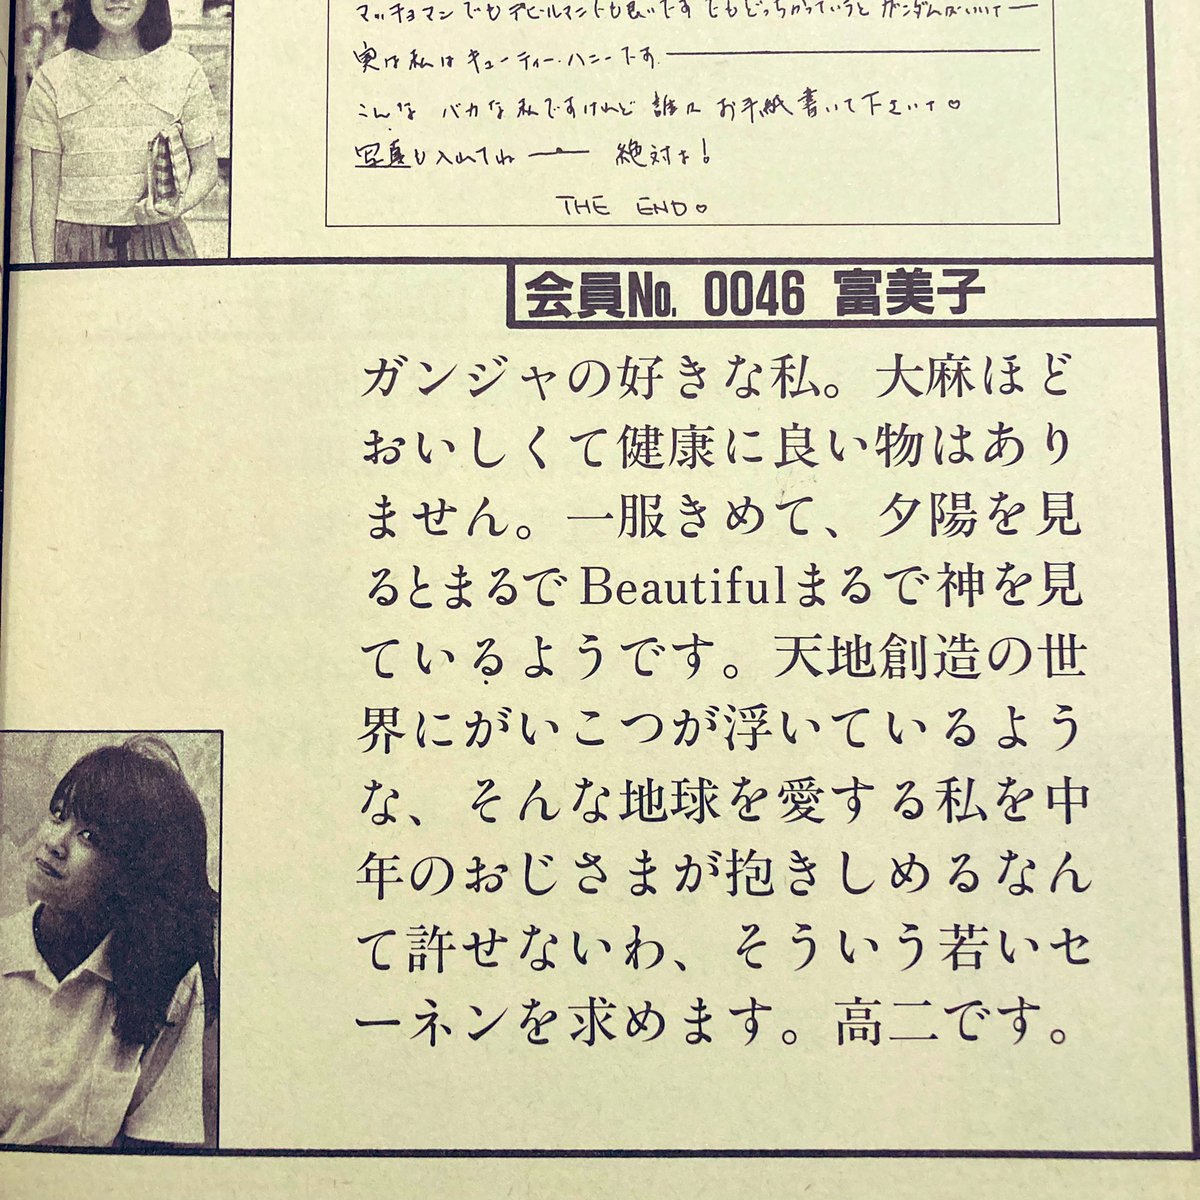 マッチョマンでもデビールマンでも良いです でもどっちかっていうと ガンダムがいいナー
実は私はキューティーハニーです
こんな バカな私ですけれど 誰か お手紙書いて下さいナ♡
写真も入れてね ── 絶対よ！
THE END♡
会員No. 0046 富美子
ガンジャの好きな私。大麻ほど
おいしくて健康に良い物はあり
ません。一服きめて、夕陽を見
るとまるでBeautifulまるで神を見
ているようです。天地創造の世
界にがいこつが浮いているよう
な、そんな地球を愛する私を中
年のおじさまが抱きしめるなん
て許せないわ、そういう若いセ
ーネンを求めます。高二です。